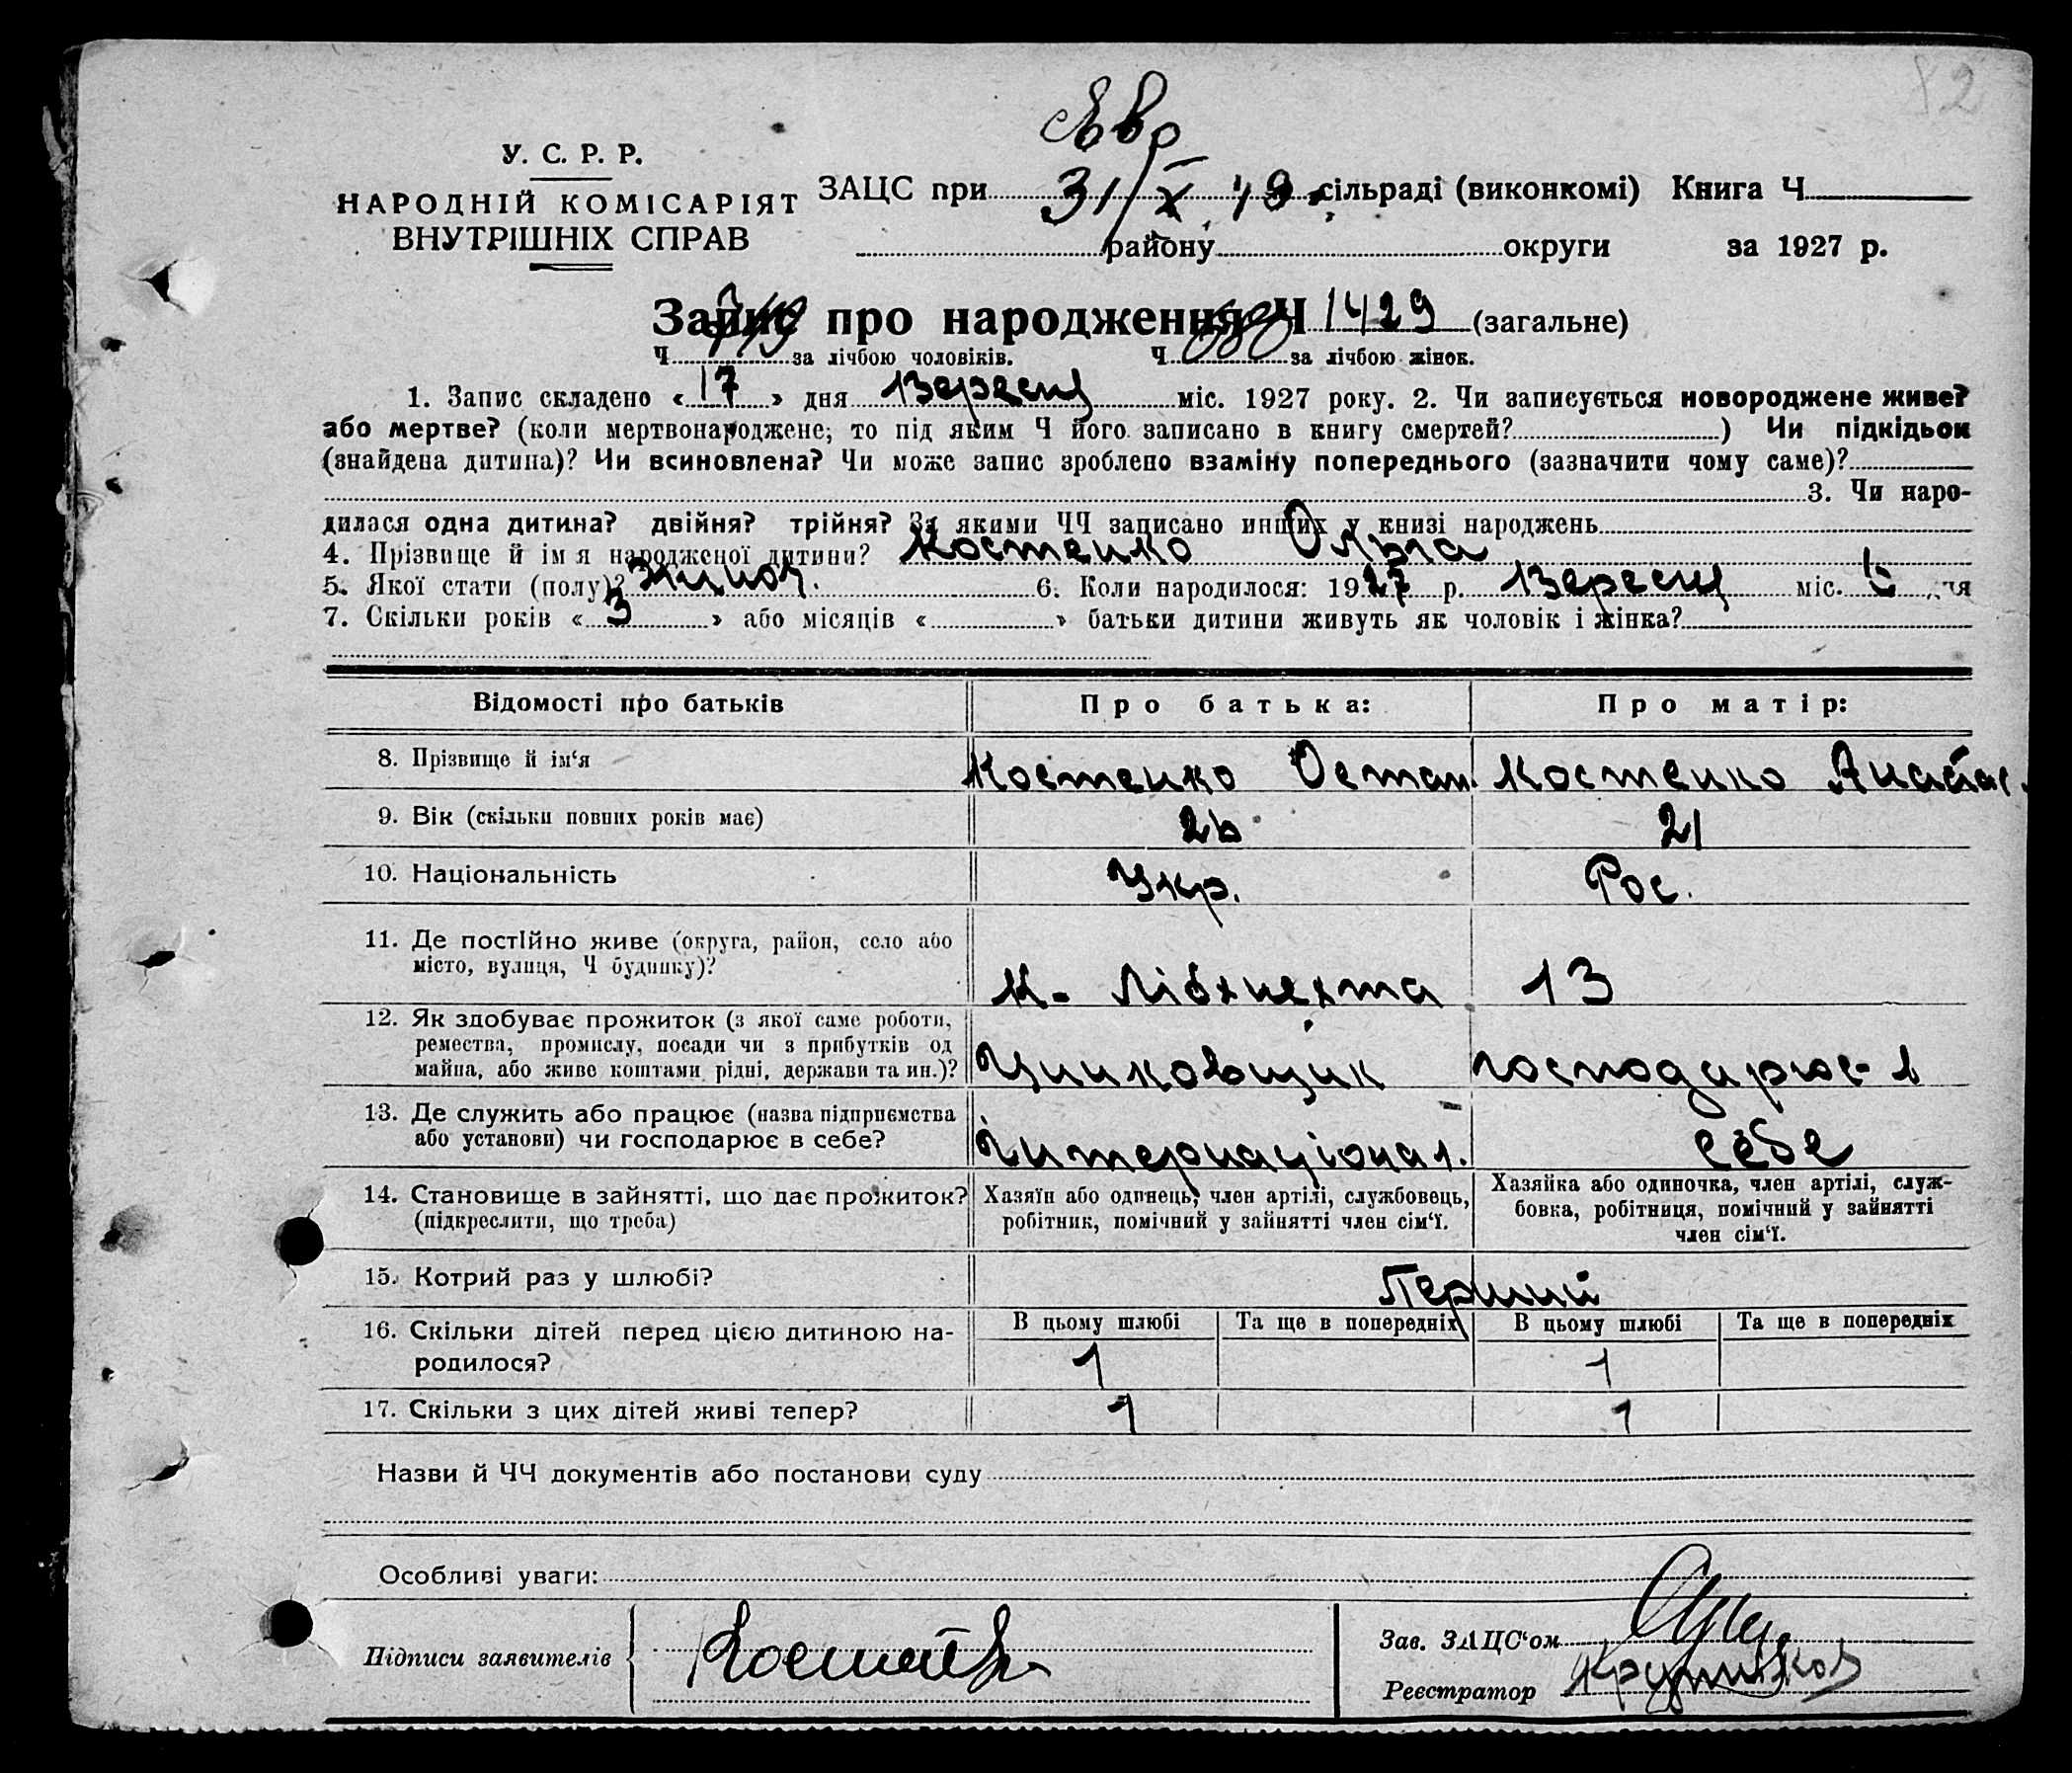 82
У. С. Р. Р.
НАРОДНІЙ КОМІСАРІЯТ
ВНУТРІШНІХ СПРАВ
ЗАЦС при 31/X 49 сільраді (виконкомі) Книга Ч
району округи за 1927 р.
Запис про народження Ч 1429 (загальне)
Ч за лічбою чоловіків. Ч 680 за лічбою жінок.
1. Запис складено « 17 » дня Вересня міс. 1927 року. 2. Чи записується новороджене живе?
або мертве? (коли мертвонароджене, то під яким Ч його записано в книгу смертей? ) Чи підкідьок
(знайдена дитина)? Чи всиновлена? Чи може запис зроблено взаміну попереднього (зазначити чому саме)?
3. Чи наро-
дилася одна дитина? двійня? трійня? За якими ЧЧ записано инших у книзі народжень
4. Прізвище й ім'я народженої дитини? Костенко Ольга
5. Якої стати (полу)? жіноч. 6. Коли народилося: 1927 р. Вересня міс. 6 дня
7. Скільки років « 3 » або місяців « » батьки дитини живуть як чоловік і жінка?
Відомості про батьків Про батька: Про матір:
8. Прізвище й ім'я Костенко Остап. Костенко Анастас.
9. Вік (скільки повних років має) 26 21
10. Національність Укр. Рос.
11. Де постійно живе (округа, район, село або
місто, вулиця, Ч будинку)? К. Лібкнехта 13
12. Як здобуває прожиток (з якої саме роботи,
ремества, промислу, посади чи з прибутків од
майна, або живе коштами рідні, держави та ин.)? Цинковщик господарює в
13. Де служить або працює (назва підприємства
або установи) чи господарює в себе? Інтернаціонал. себе
14. Становище в зайнятті, що дає прожиток?
(підкреслити, що треба)
Хазяїн або одинець, член артілі, службовець,
робітник, помічний у зайнятті член сім'ї.
Хазяйка або одиночка, член артілі, служ-
бовка, робітниця, помічний у зайнятті
член сім'ї.
15. Котрий раз у шлюбі? Перший
16. Скільки дітей перед цією дитиною на-
родилося?
В цьому шлюбі Та ще в попередніх В цьому шлюбі Та ще в попередніх
1 1
17. Скільки з цих дітей живі тепер? 1 1
Назви й ЧЧ документів або постанови суду
Особливі уваги:
Підписи заявителів
Зав. ЗАЦС'ом
Реєстратор